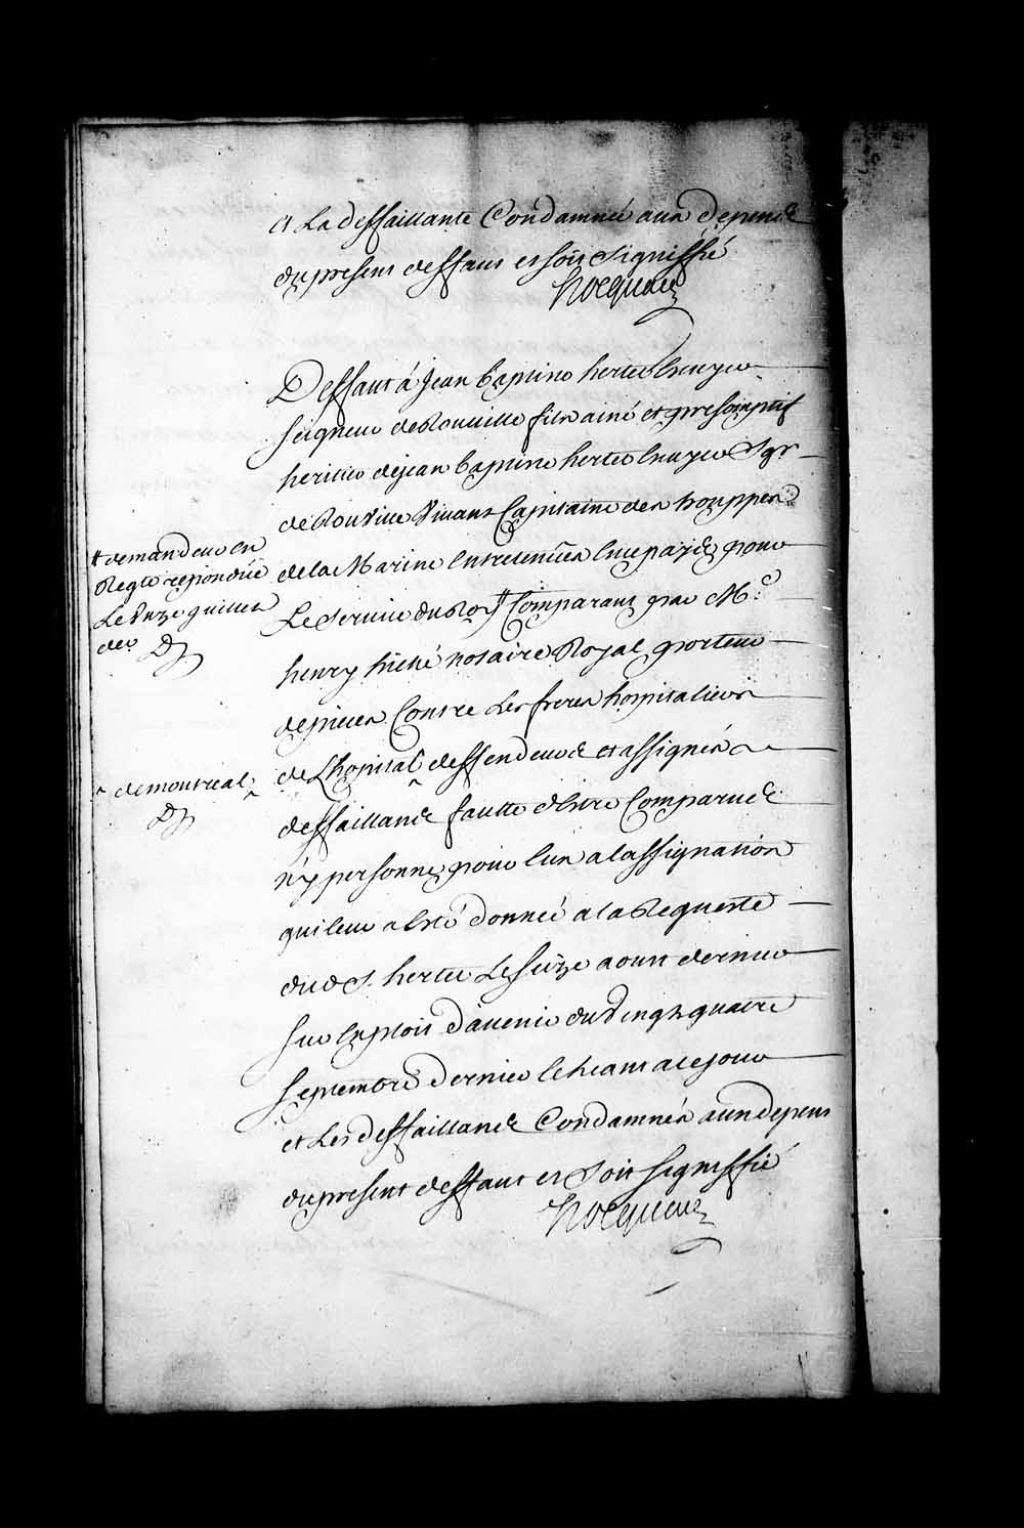 et La deffaillante Condamnée aux depends
du present deffaut et soit signiffié
hocquart
Deffaut á Jean baptiste hertel Ecuyer
seigneur de Rouville fils ainé et presomptif
heritier de jean baptiste hertel Ecuyer Sgr
de Rouville vivant Capitaine des trouppes
de la Marine Entretenües En ce païs pour
Le service du Roy ‡ Comparant par Me
henry hiché notaire Royal porteur
de pieces Contre Les freres hospitaliers
de L'hopital ^ deffendeurs et assignés
deffaillands fautte d'Estre Comparus
n'y personne pour Eux a l'assignation
qui leur a Esté donnée a la Requeste
dud S. hertel Le seize aoust dernier
sur Exploit d'avenir du vingt quatre
septembre dernier Echeant a ce jour
et Les deffaillands Condamnés aux depens
du present deffaut et soit signiffié
hocquart
‡ demandeur en
Reqte repondüe
Le onze juillet
der
^ de montreal